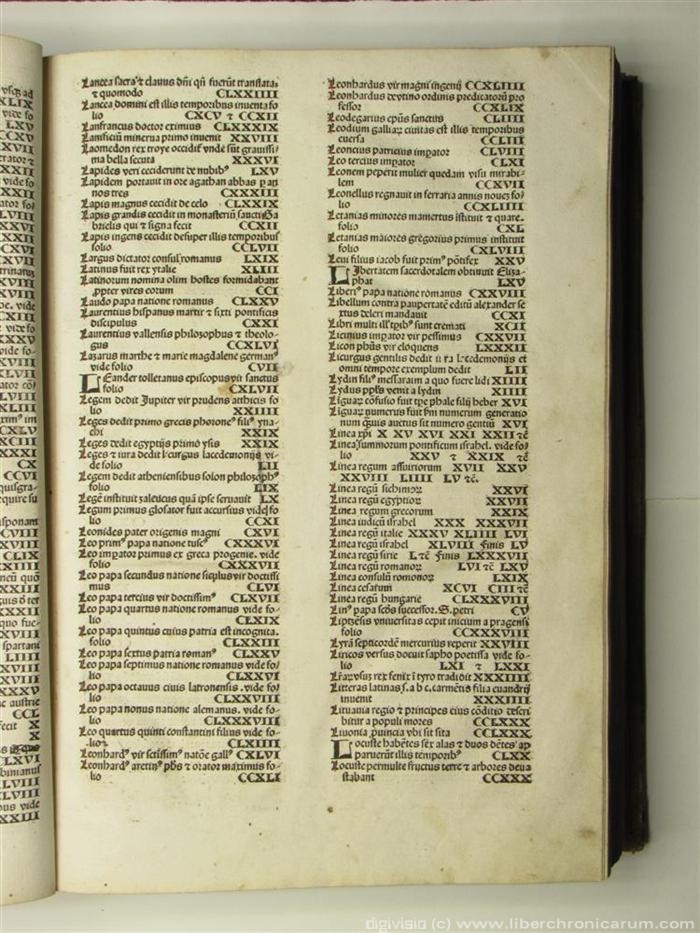 Lancea sacra ⁊ clauus dñi qñ fuerũt translata
⁊ quomodo CLXXIIII
Lancea domini est illis temporibus inuenta fo
lio CXCV ⁊ CCXII
Lanfrancus doctor eximius CLXXXIX
Lanificiũ minerua primo inuenit XXVIII
Laomedon rex troye occidit᷑ vnde sũt grauissi
ma bella secuta XXXVI
Lapides veri ceciderunt de nubibꝰ LXV
Lapidem portauit in ore agathan abbas p an
nos tres CXXXIIII
Lapis magnus cecidit de celo CLXXIX
Lapis grandis cecidit in monasteriũ
brielis qui ⁊ signa fecit CCXII
Lapis ingens cecidit desuper illis temporibus
folio CCLVII
Largus dictator consul romanus LXIX
Latinus fuit rex ytalie XLIII
Latinorum nomina olim hostes formidabant
ꝓpter vires eorum CCI
Laudo papa natione romanus CLXXV
Laurentius hispanus martir ⁊ sixti pontificis
discipulus CXXI
Laurentius vallensis philosophus ⁊ theolo-
gus CCXLVI
Lazarus marthe ⁊ marie magdalene germanꝰ
vide folio CVII
LEander tolletanus episcopus vir sanctus
folio CXLVII
Legem dedit Jupiter vir prudens atthicis fo
lio XXIIII
Leges dedit primo grecis phoronꝰ filiꝰ yna-
chi XXIX
Leges dedit egyptijs primo ysis XXIX
Leges ⁊ iura dedit licurgus lacedemonijs vi-
de folio LII
Legem dedit atheniensibus solon philosophꝰ
folio LIX
Legẽ instituit zaleucus quã ipse seruauit LX
Legum primus glosator fuit accursius vide fo
lio CCXI
Leonides pater origenis magni CXVI
Leo primꝰ papa natione tuscꝰ CXXXVI
Leo impator primus ex greca progenie. vide
folio CXXXVII
Leo papa secundus natione sieplus vir doctiss
mus CLVI
Leo papa tercius vir doctissimꝰ CLXVII
Leo papa quartus natione romanus vide fo-
lio CLXIX
Leo papa quintus cuius patria est incognita.
folio CLXXIIII
Leo papa sextus patria romanꝰ CLXXV
Leo papa septimus natione romanus vide fo
lio CLXXVI
Leo papa octauus ciuis latronensis. vide fo
lio CLXXVIII
Leo papa nonus natione alemanus. vide fo-
lio CLXXXVIII
Leo quartus quinti constantini filius vide fo
lio CLXIIII
Leonhardꝰ vir sctissimꝰ natõe gallꝰ CXLVI
Leonhardꝰ aretinꝰ phs ⁊ orator maximus fo-
lio CCXLI
Leonhardus vir magni ingenij CCXLIIII
Leonhardus de vtino ordinis predicatorũ pro
fessor CCXLIX
Leodegarius epũs sanctus CLIIII
Leodium galliaꝝ ciuitas est illis temporibus
euersa CCLIII
Leoncius patricius impator CLVIII
Leo tercius impator CLXI
Leonem peperit mulier quedam visu mirabi-
lem CCXVII
Leonellus regnauit in ferraria annis nouez fo
lio CCXLIIII
Letanias minores mamertus istituit ⁊ quare.
folio CXL
Letanias maiores gregorius primus instituit
folio CXLVIII
Leui filius iacob fuit primꝰ põtifex XXV
LIbertatem sacerdotalem obtinuit Eliza-
phat LXV
Liberiꝰ papa natione romanus CXXVIII
Libellum contra paupertatẽ editũ alexander se
xtus deleri mandauit CCXI
Libri multi ill tpibꝰ sunt cremati XCII
Licinius impator vir pessimus CXXVII
Licon phũs vir eloquens LXXXII
Licurgus gentilis dedit iura lacedemonijs et
omni tempore exemplum dedit LII
Lydin filiꝰ messaraim a quo fuere lidi XIIII
Lydus pplꝰ venit a lydin XIIII
Liguaꝝ cõfusio fuit tpe phale filij heber XVI
Liguaꝝ numerus fuit fm numerum generatio
num quis auctus sit numero gentiũ XVI
Linea xpi X XV XVI XXI XXII ⁊c̃
Linea summorum pontificum israhel. vide fo-
lio XXV ⁊ XXIX ⁊c̃
Linea regum assuriorum XVII XXV
XXVIII LIIII LV ⁊c̃.
Linea regũ sichimoꝝ XXVI
Linea regũ egyptioꝝ XXVII
Linea regum grecorum XXIX
Linea iudicũ israhel XXX XXXVII
Linea regũ italie XXXV XLIIII LVI
Linea regũ israhel XLVIII finis LV
Linea regũ sirie L ⁊c̃ finis LXXXVII
Linea regũ romanoꝝ LVI ⁊c̃ LXV
Linea consulũ romonoꝝ LXIX
Linea cesarum XCVI CIII ⁊c̃
Linea regũ hungarie CLXXXVIII
Linꝰ papa scds successor. S. petri CV
Liptzensis vniuersitas cepit inicium a pragensi
folio CCXXXVIII
Lyrã septicordẽ mercurius reperit XXVIII
Liricos versus docuit sapho poetissa vide fo-
lio LXI ⁊ LXXI
fenix i tyro tradidit XXXIIII
Litteras latinas s. a b c. carmẽtis filia euandrij
inuenit XXXIIII
Lituania regio ⁊ principes eius cõditio descri
bitur a populi mores CCLXXX
Liuonia ꝓuincia vbi sit sita CCLXXX
LOcuste habẽtes sex alas ⁊ duos dẽtes ap
paruerũt illis tẽporibꝰ CLXX
Locuste permulte fructus terre ⁊ arbores deua
stabant CCXXX
digivisio (c) www.liberchronicarum.com